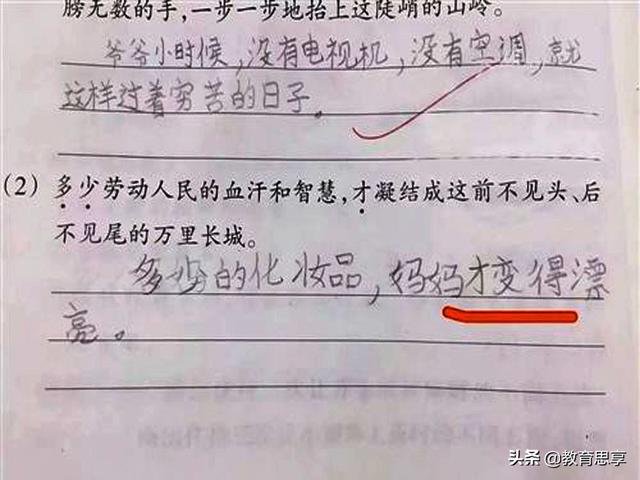 膀无数的手,一步一步地抬上这陡峭的山岭。
爷爷小时候,没有电视机,没有空调,就
这样过着穷苦的日子。
(2) 多少劳动人民的血汗和智慧,才凝结成这前不见头、后
不见尾的万里长城。
多少的化妆品,妈妈才变得漂
亮。
头条 @教育思享